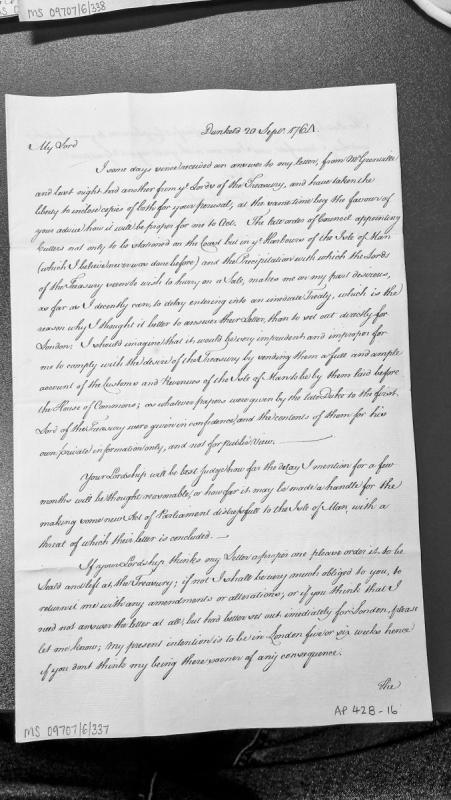 MS 09707/6/338
Dunkeld 20 Sepr. 1764.
My Lord
I some days since received an answer to my letter, from Mr Grenville
and last night had another from ye Lords of the Treasury, and have taken the
liberty to inclose copies of both for your perusal, at the same time beg the favour of
your advice how it will be proper for me to Act. The late order of Council appointing
Cutters not only to be stationed on the Coast but in ye Harbours of the Isle of Man
(which I believe never was done before) and the Precipitation with which the Lords
of the Treasury seem to wish to hurry on a Sale, makes me on my part desirous,
as far as I decently can, to delay entering into an imediate Treaty, which is the
reason why I thought it better to answer their Letter, than to set out directly for
London: I should imagine that it would be very imprudent and improper for
me to comply with the desire of the Treasury by sending them a full and ample
account of the Customs and Revenues of the Isle of Man to be by them laid before
the House of Commons; as whatever papers were given by the late Duke to the first
Lord of the Treasury were given in confidence, and the contents of them for his
own private information only, and not for public view.
Your Lordship will be best judge how far the delay I mention for a few
months will be thought reasonable, or how far it may be made a handle for the
making some new Act of Parliament disrespectfull to the Isle of Man, with a
threat of which their letter is concluded.
If your Lordship thinks my Letter a proper one please order it to be
Seal'd and left at the Treasury; if not I shall be very much obliged to you, to
return it me with any amendments or alterations, or if you think that I
need not answer the letter at all, but had better set out imediately for London, please
let me know; my present intention is to be in London five or six weeks hence
if you dont think my being there sooner of any consequence.
The
AP 42B-16
MS 09707/6/337